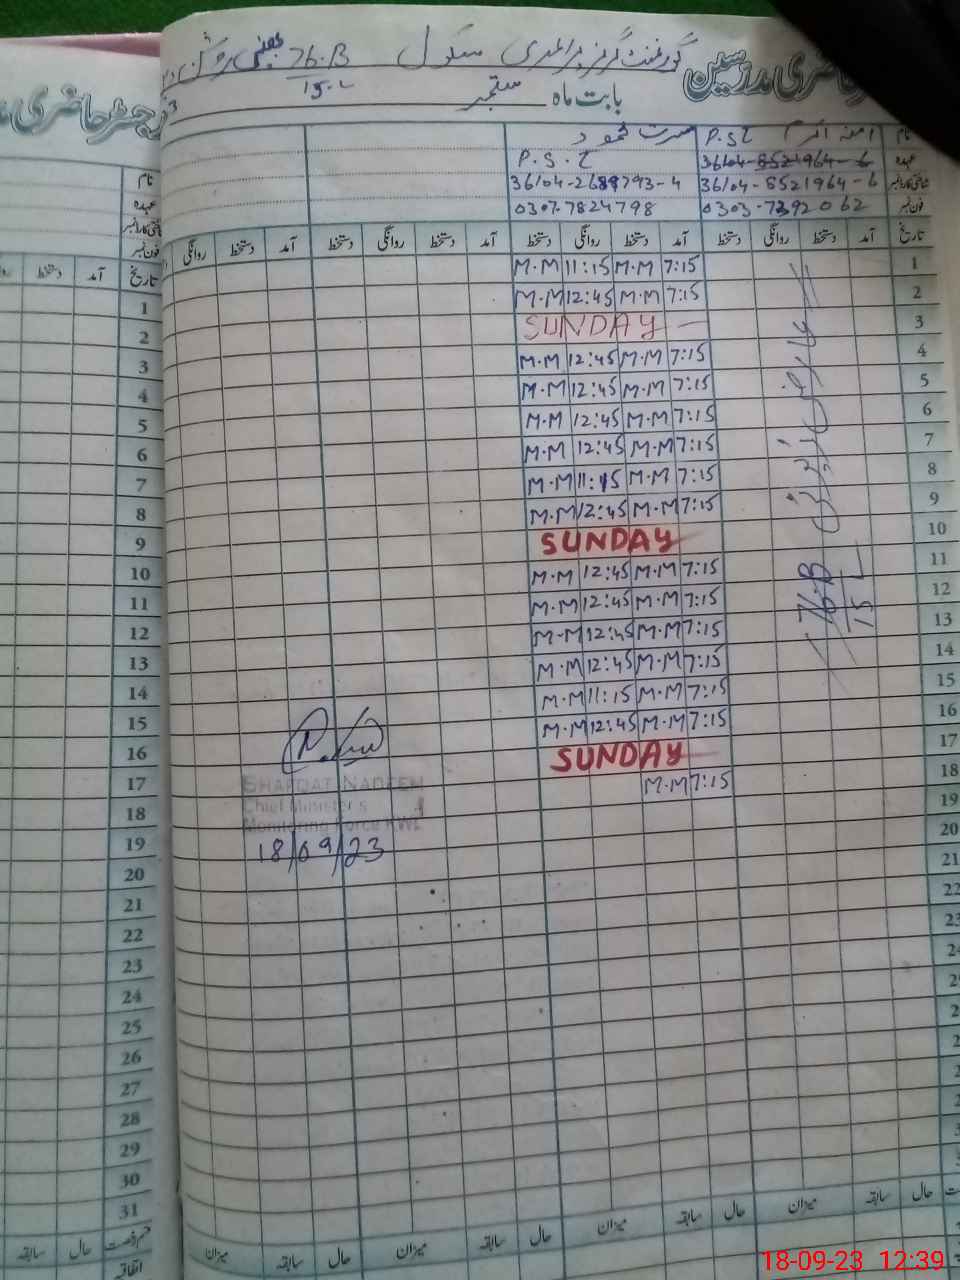 رجسٹر حاضری
گورنمنٹ گرلز پرائمری سکول 76.B
15-L
حاضری مدرسین
بابت ماہ ستمبر
نام
P.ST
مسرت محمود
عہدہ
36104-8521964-6
P.S.T
شناختی کارڈ نمبر
36104-8521964-6
36104-2689793-4
فون نمبر
0303-7392062
0307-7824798
تاریخ آمد دستخط روانگی دستخط آمد دستخط روانگی دستخط آمد دستخط روانگی دستخط آمد دستخط روانگی
1 7:15 M.M 11:15 M.M
2 7:15 M.M 12:45 M.M
3 SUNDAY
4 7:15 M.M 12:45 M.M
5 7:15 M.M 12:45 M.M
6 7:15 M.M 12:45 M.M
7 7:15 M.M 12:45 M.M
8 7:15 M.M 11:15 M.M
9 7:15 M.M 12:45 M.M
10 SUNDAY
11 7:15 M.M 12:45 M.M
12 7:15 M.M 12:45 M.M
13 7:15 M.M 12:45 M.M
14 7:15 M.M 12:45 M.M
15 7:15 M.M 11:15 M.M
16 7:15 M.M 12:45 M.M
17 SUNDAY
18 7:15 M.M
19
20
21
22
23
76-B
15 L
SHAFQAT NADEEM
Chief Minister's
Monitoring Force KWL
18/09/23
میزان سابقہ حال میزان سابقہ حال میزان سابقہ حال میزان
نام
عہدہ
شناختی کارڈ نمبر
فون نمبر
تاریخ آمد دستخط
1
2
3
4
5
6
7
8
9
10
11
12
13
14
15
16
17
18
19
20
21
22
23
24
25
26
27
28
29
30
31
قسم رخصت حال سابقہ
اتفاقیہ
18-09-23 12:39